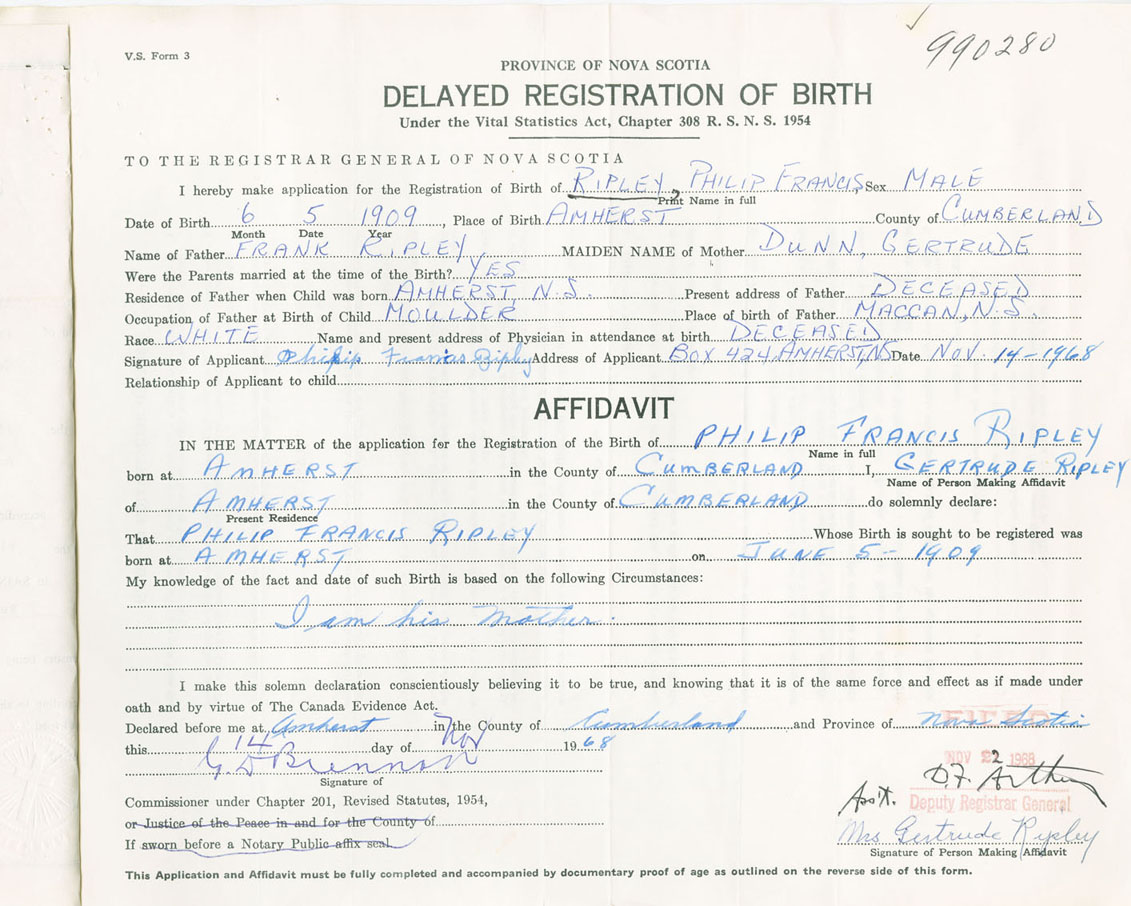 990280
V.S. Form 3
PROVINCE OF NOVA SCOTIA
DELAYED REGISTRATION OF BIRTH
Under the Vital Statistics Act, Chapter 308 R. S. N. S. 1954
TO THE REGISTRAR GENERAL OF NOVA SCOTIA
I hereby make application for the Registration of Birth of RIPLEY, PHILIP FRANCIS Sex MALE
Print Name in full
Date of Birth 6 5 1909, Place of Birth AMHERST County of CUMBERLAND
Month Date Year
Name of Father FRANK RIPLEY MAIDEN NAME of Mother DUNN, GERTRUDE
Were the Parents married at the time of the Birth? YES
Residence of Father when Child was born AMHERST, N.S. Present address of Father DECEASED
Occupation of Father at Birth of Child MOULDER Place of birth of Father MACCAN, N.S.
Race WHITE Name and present address of Physician in attendance at birth DECEASED
Signature of Applicant Philip Francis Ripley Address of Applicant BOX 424, AMHERST, NS Date NOV. 14-1968
Relationship of Applicant to child
AFFIDAVIT
IN THE MATTER of the application for the Registration of the Birth of PHILIP FRANCIS RIPLEY
Name in full
born at AMHERST in the County of CUMBERLAND I, GERTRUDE RIPLEY
Name of Person Making Affidavit
of AMHERST in the County of CUMBERLAND do solemnly declare:
Present Residence
That PHILIP FRANCIS RIPLEY Whose Birth is sought to be registered was
born at AMHERST on JUNE 5-1909
My knowledge of the fact and date of such Birth is based on the following Circumstances:
I am his Mother.
I make this solemn declaration conscientiously believing it to be true, and knowing that it is of the same force and effect as if made under
oath and by virtue of The Canada Evidence Act.
Declared before me at Amherst in the County of Cumberland and Province of Nova Scotia
this 14 day of Nov 1968
G D Brennan
Signature of
NOV 22 1968
D.F. Arthur
Commissioner under Chapter 201, Revised Statutes, 1954,
Ass't. Deputy Registrar General
or Justice of the Peace in and for the County of
Mrs Gertrude Ripley
If sworn before a Notary Public affix seal.
Signature of Person Making Affidavit
This Application and Affidavit must be fully completed and accompanied by documentary proof of age as outlined on the reverse side of this form.